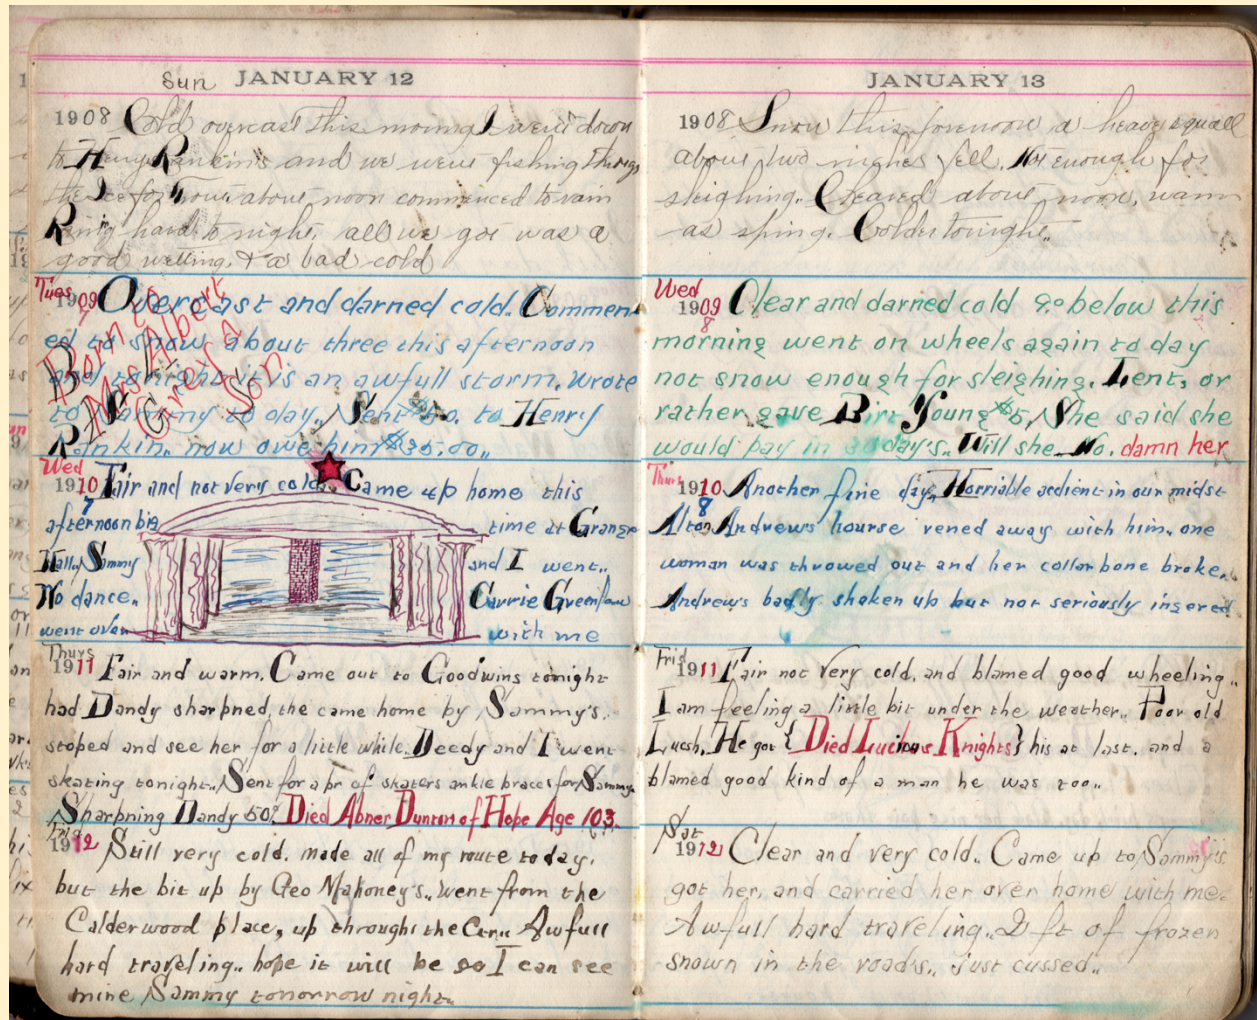 Sun JANUARY 12
1908 Cold overcast this morning I went down
to Henry Rankin's and we went fishing through
the ice for Trout. about noon commenced to rain
Raing hard to night. all we got was a
good wetting. & a bad cold
Tues
1909 Overcast and darned cold.. Commen
7
ed to snow about three this afternoon
and tonight it is an awfull storm. Wrote
to Mammy to day.. Sent $50. to Henry
Rankin.. now owe him $35.00..
Born to
Mrs Albert
Grey a
Son
Wed
1910 Fair and not very cold. Came up home this
7
afternoon big time at Grange
Hall. Sammy and I went..
No dance. Carrie Greenlaw
went over with me
Thurs
1911 Fair and warm. Came out to Goodwins tonight
had Dandy sharpned, the came home by Sammy's.
stoped and see her for a little while. Deedy and I went
skating tonight.. Sent for a pr of skaters ankle braces for Sammy
Sharpning Dandy 50¢ Died Abner Dunton of Hope Age 103.
Fri
1912 Still very cold. made all of my route to day.
but the bit up by Geo Mahoney's.. went from the
Calderwood place, up throught the Cer.. Awfull
hard traveling.. hope it will be so I can see
mine Sammy tomorrow night..
JANUARY 13
1908 Snow this forenoon a heavy squall
about two inches fell. Not enough for
sleighing.. Cleared about noon, warm
as spring. Colder tonight..
Wed
1909 Clear and darned cold 9° below this
8
morning went on wheels again to day
not snow enough for sleighing. Lent, or
rather gave Birt Young $5. She said she
would pay in 30 day's. Will she. No. damn her
Thurs
1910 Another fine day. Horriable acdient in our midst
8
Alton Andrew's hourse rened away with him.. one
woman was throwed out and her collar bone broke.
Andrew's badly shaken up but not seriously insered
Frid
1911 Fair not very cold. and blamed good wheeling..
I am feeling a little bit under the weather.. Poor old
Lush. He got { Died Lucious Knights } his at last. and a
blamed good kind of a man he was too..
Sat
1912 Clear and very cold.. Came up to Sammy's
got her, and carried her over home with me.
Awfull hard traveling.. 2 ft of frozen
snown in the road's.. just cussed..